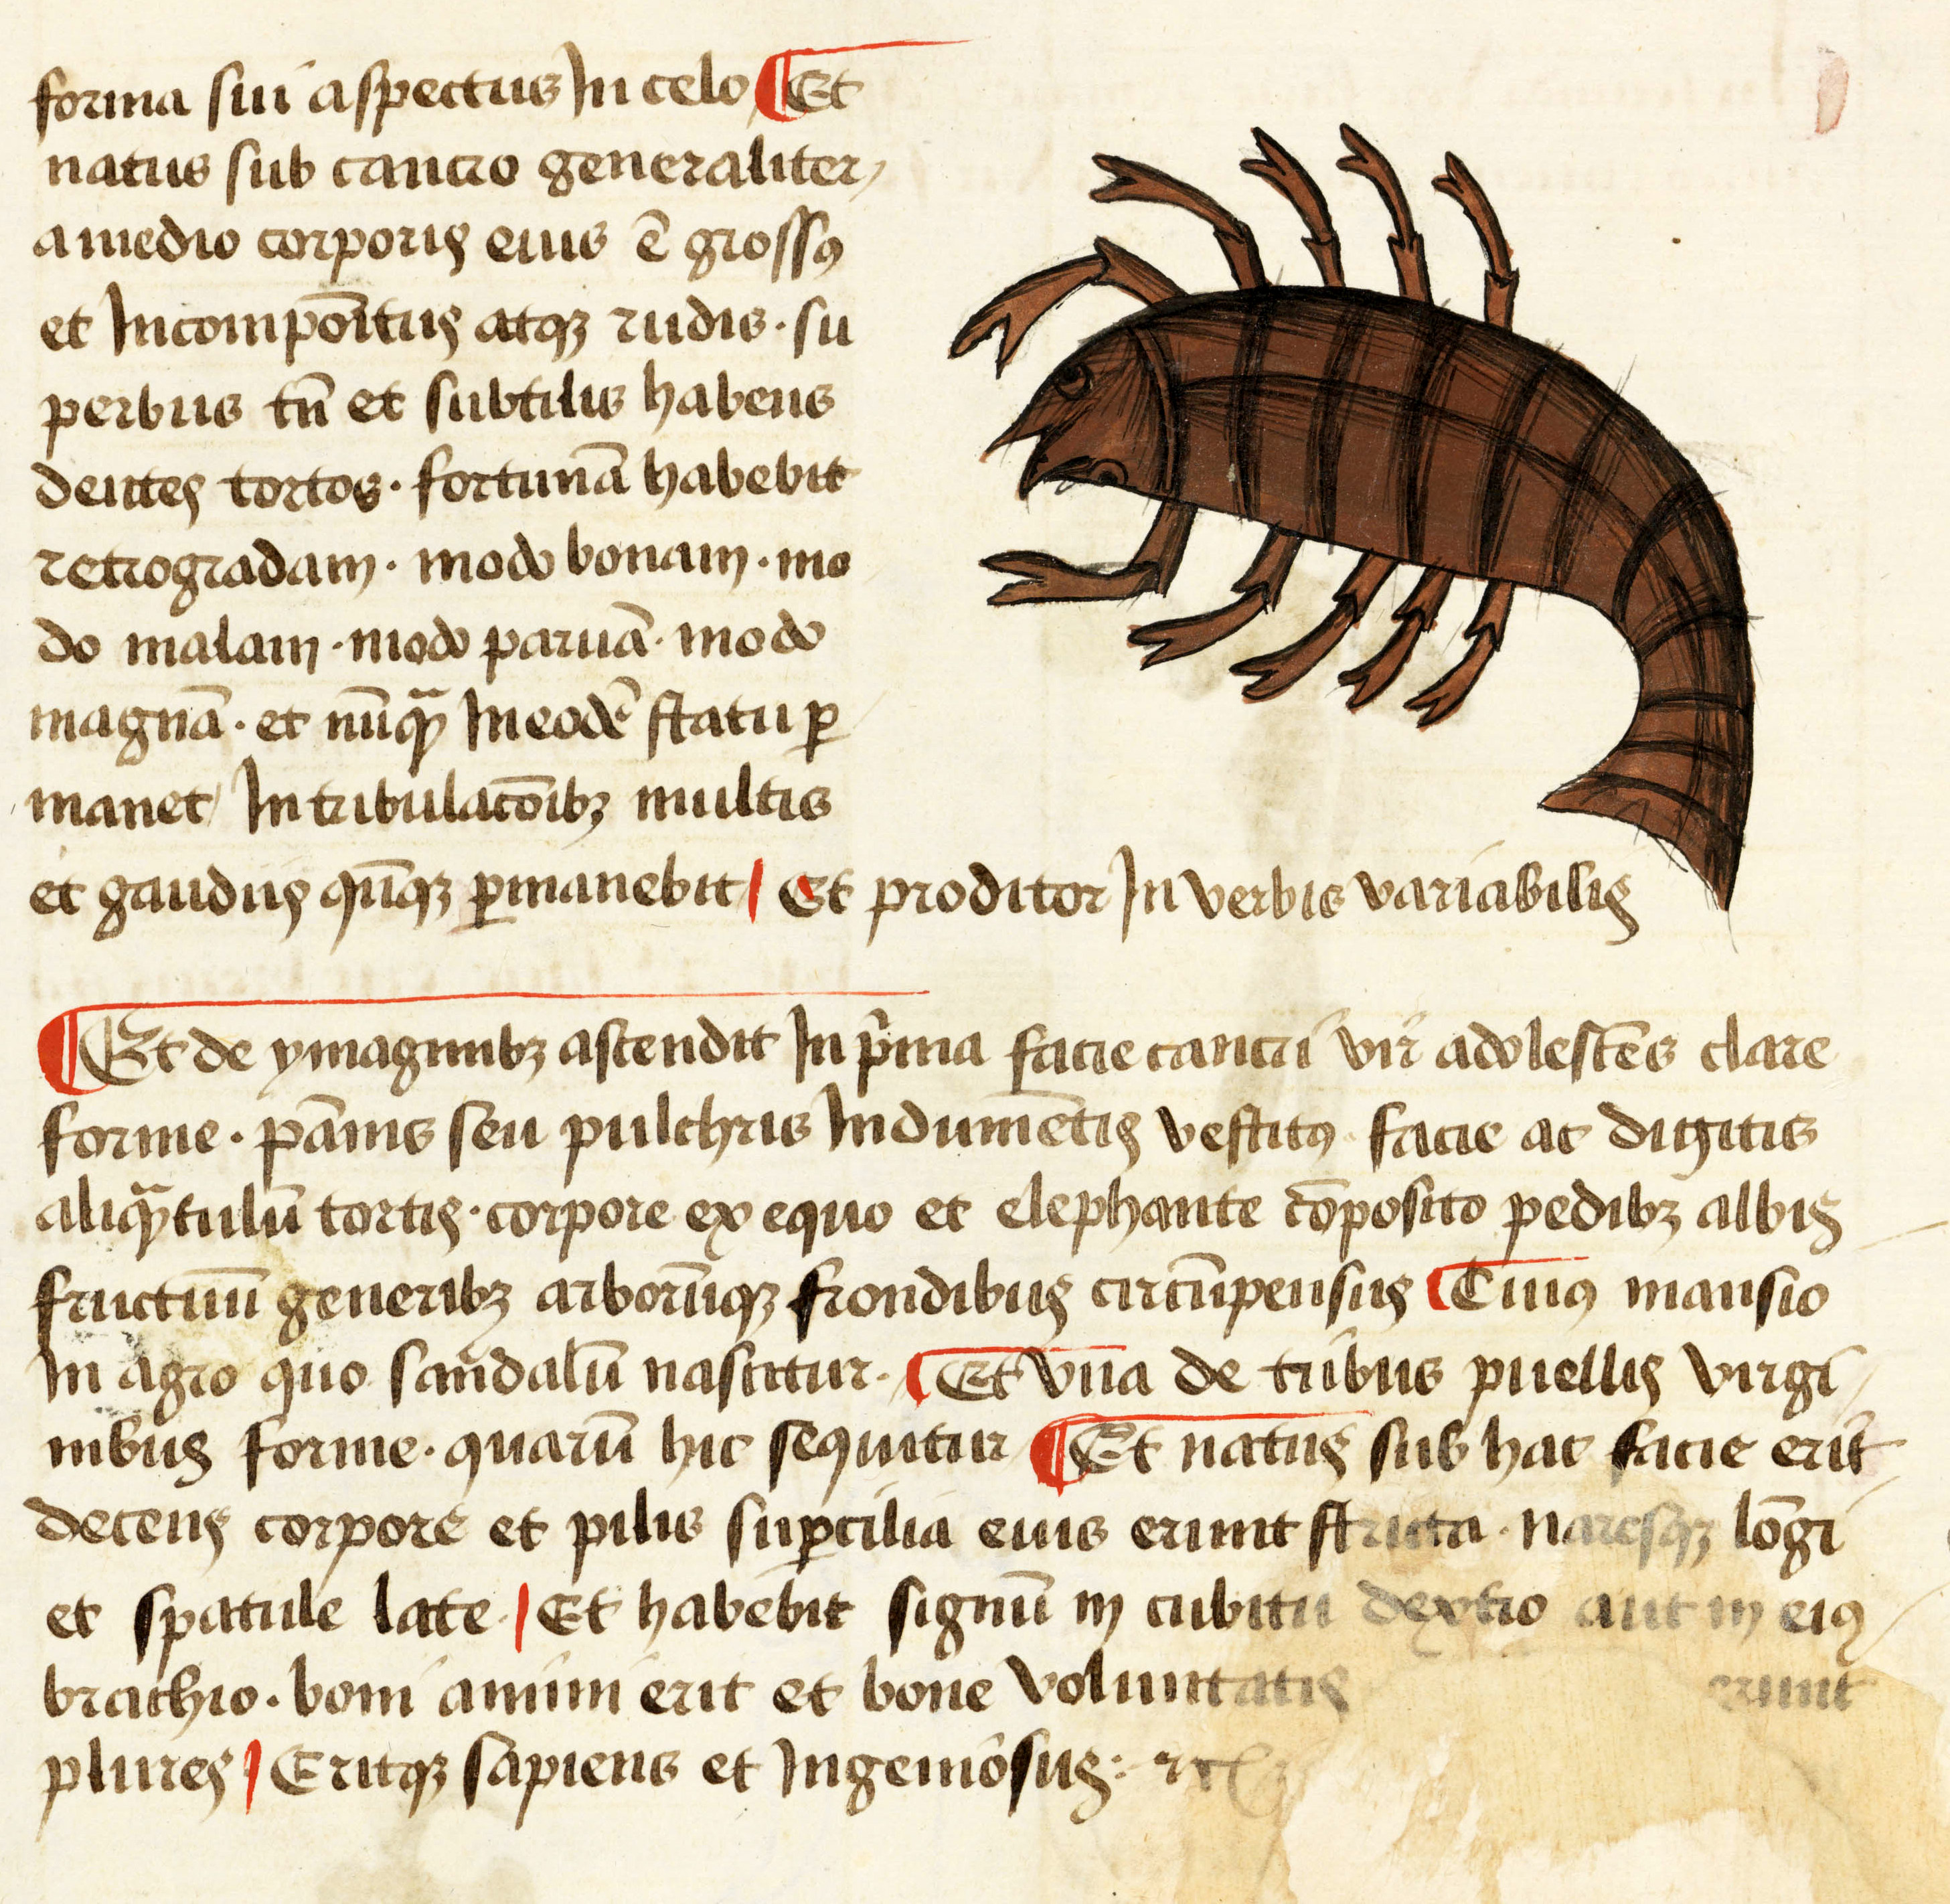 forma sui aspectus In celo Et
natus sub cancro generaliter
a medio corporis eius ē grossꝯ
et Incompōitus atqꝫ rudis · su
perbus tn̄ et subtilis habens
dentes tortos · fortunā habebit
retrogradam · modo bonam · mo
do malam · modo paruā · modo
magnā · et nūqᷓ In eodē statu ꝑ
manet In tribulacōibꝫ multis
et gaudiis qn̄qꝫ ꝑmanebit Et proditor In verbis variabilis
Et de ymaginibꝫ ascendit In pͥma facie cancri vir adolescēs clare
forme · pānis seu pulchris Indumētis vestitꝯ facie ac digitis
aliqᷓtulū tortis · corpore ex equo et elephante cōposito pedibꝫ albis
fructuū generibꝫ arborūqꝫ frondibus circūpensus Cuiꝯ mansio
In agro quo sandalū nascitur · Et vna de tribus puellis virgi
nibus forme · quarū hic sequitur Et natus sub hac facie erit
decens corpore et pilis suꝑcilia eius erunt stricta · naresqꝫ lōgi
et spatule late · Et habebit signū in cubitu dextro aut in eiꝯ
brachio · boni animi erit et bone voluntatis erunt
plures Eritqꝫ sapiens et Ingeniosus :